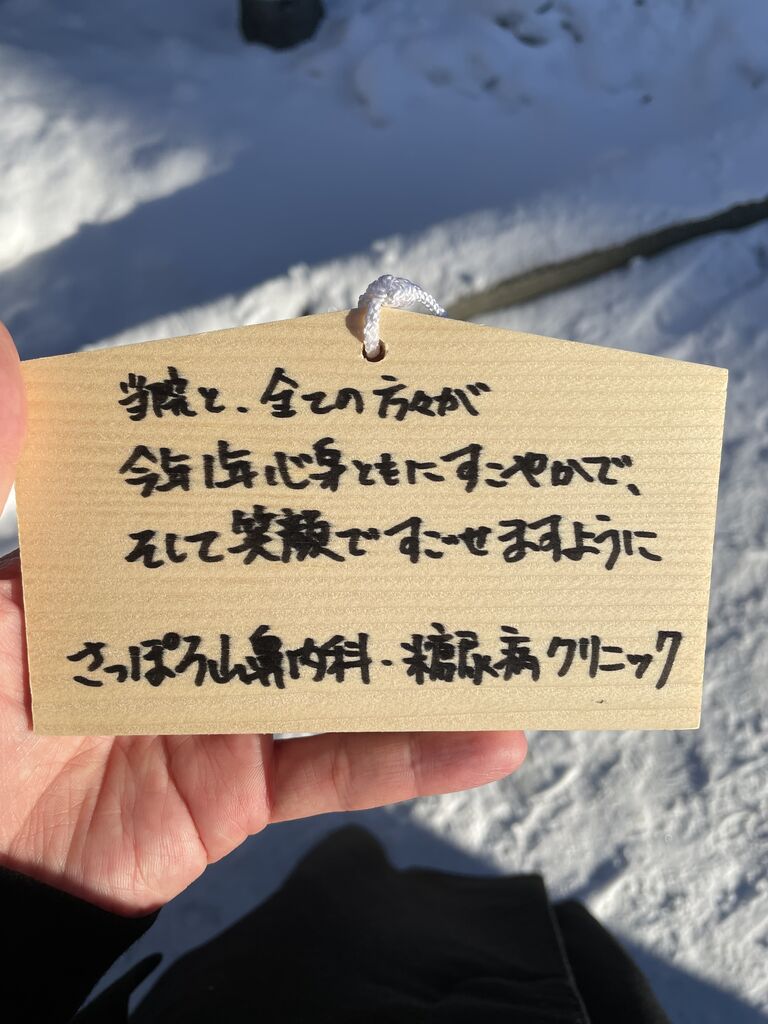 当院と、全ての方々が
今年1年心身ともにすこやかで、
そして笑顔ですごせますように
さっぽろ山鼻内科・糖尿病クリニック